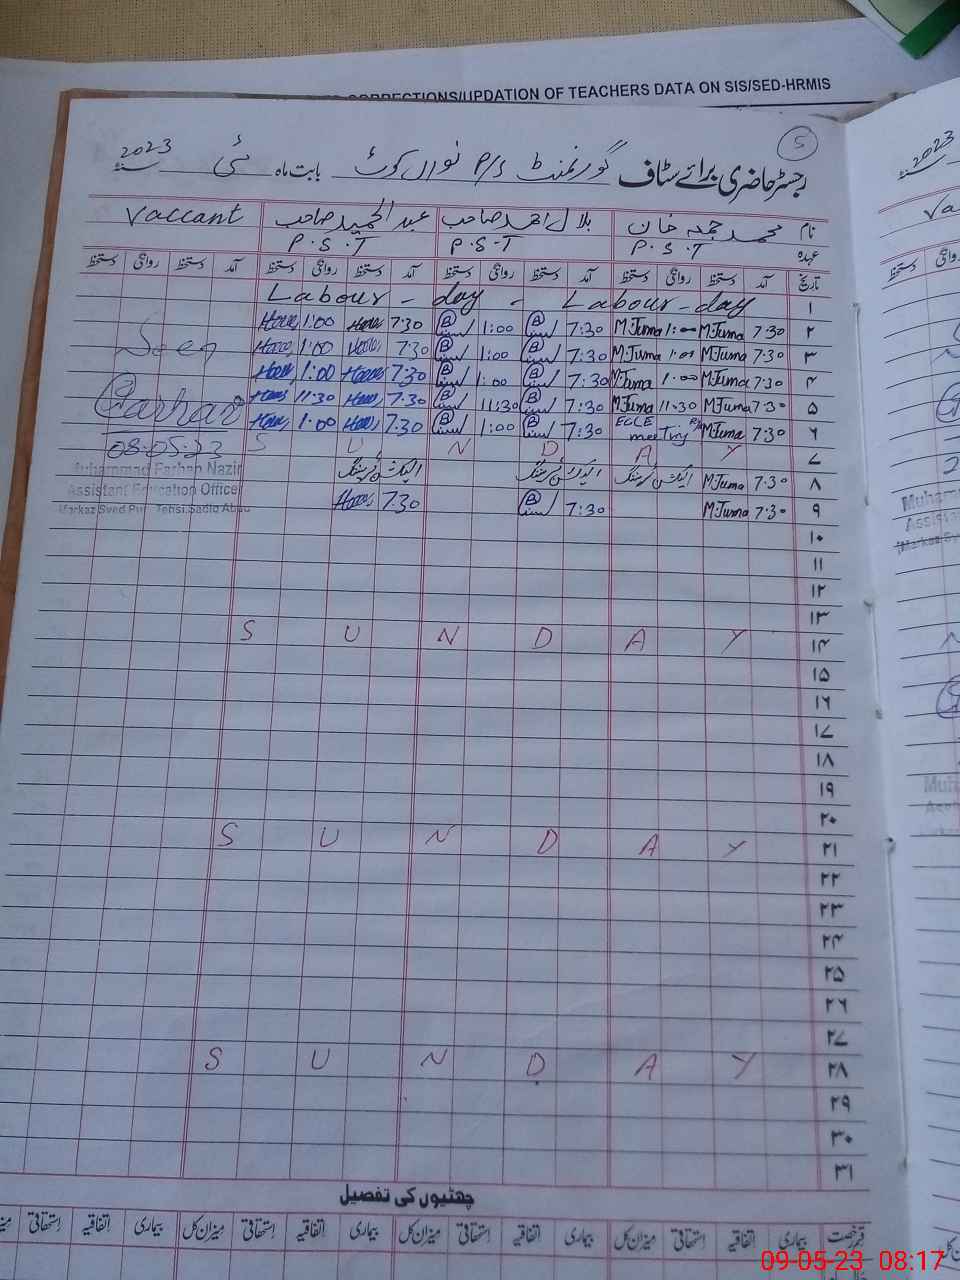 CORRECTIONS/UPDATION OF TEACHERS DATA ON SIS/SED-HRMIS
5
رجسٹر حاضری برائے سٹاف گورنمنٹ P/S نوال کوٹ بابت ماہ مئی 2023
نام محمد جمعہ خان بلال احمد صاحب عبدالحمید صاحب Vaccant
عہدہ P.S.T P.S.T P.S.T
تاریخ آمد دستخط روانگی دستخط آمد دستخط روانگی دستخط آمد دستخط روانگی دستخط آمد دستخط روانگی دستخط
۱ Labour - day - Labour - day
۲ 7:30 M.Juma 1:00 M.Juma 7:30 1:00 7:30 1:00
۳ 7:30 M.Juma 1:00 M.Juma 7:30 1:00 7:30 1:00 Seen
۴ 7:30 M.Juma 1:00 M.Juma 7:30 1:00 7:30 1:00
۵ 7:30 M.Juma 11:30 M.Juma 7:30 11:30 7:30 11:30 Farhan
۶ 7:30 M.Juma ECCE meeting 7:30 1:00 7:30 1:00
۷ S U N D A Y 08-05-23
۸ 7:30 M.Juma الیکشن ٹریننگ الیکشن ٹریننگ الیکشن ٹریننگ
Muhammad Farhan Nazir
Assistant Education Officer
۹ 7:30 M.Juma 7:30 7:30
Markaz Syed Pur Tehsil Sadiq Abad
۱۰
۱۱
۱۲
۱۳
۱۴ S U N D A Y
۱۵
۱۶
۱۷
۱۸
۱۹
۲۰
۲۱ S U N D A Y
۲۲
۲۳
۲۴
۲۵
۲۶
۲۷
۲۸ S U N D A Y
۲۹
۳۰
۳۱
چھٹیوں کی تفصیل
قسم رخصت بیماری اتفاقیہ استحقاقی میزان کل بیماری اتفاقیہ استحقاقی میزان کل بیماری اتفاقیہ استحقاقی میزان کل بیماری اتفاقیہ استحقاقی
09-05-23 08:17
2023